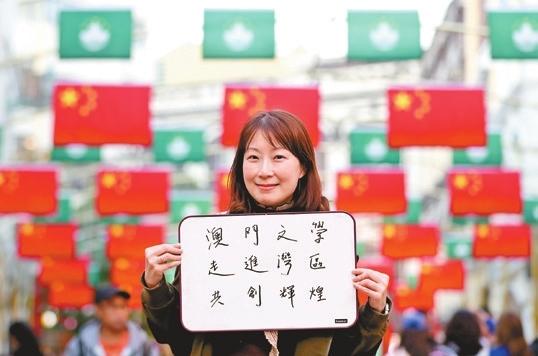 澳門文學
走進灣區
共創輝煌